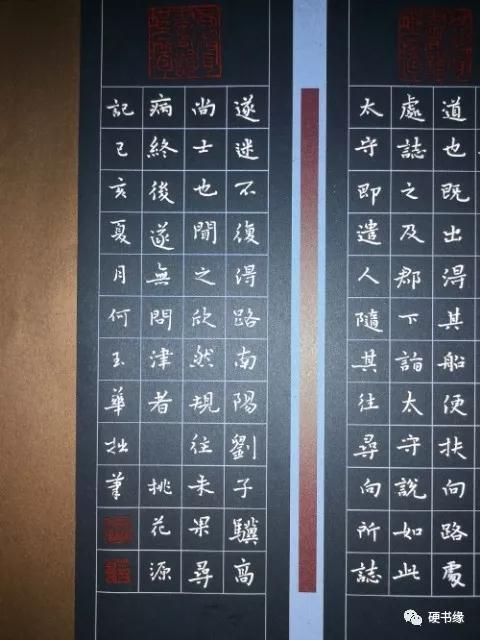 道也既出得其船便扶向路處
處誌之及郡下詣太守說如此
太守即遣人隨其往尋向所誌
遂迷不復得路南陽劉子驥高
尚士也聞之欣然規往未果尋
病終後遂無問津者 桃花源
記己亥夏月何玉華拙筆
硬书缘